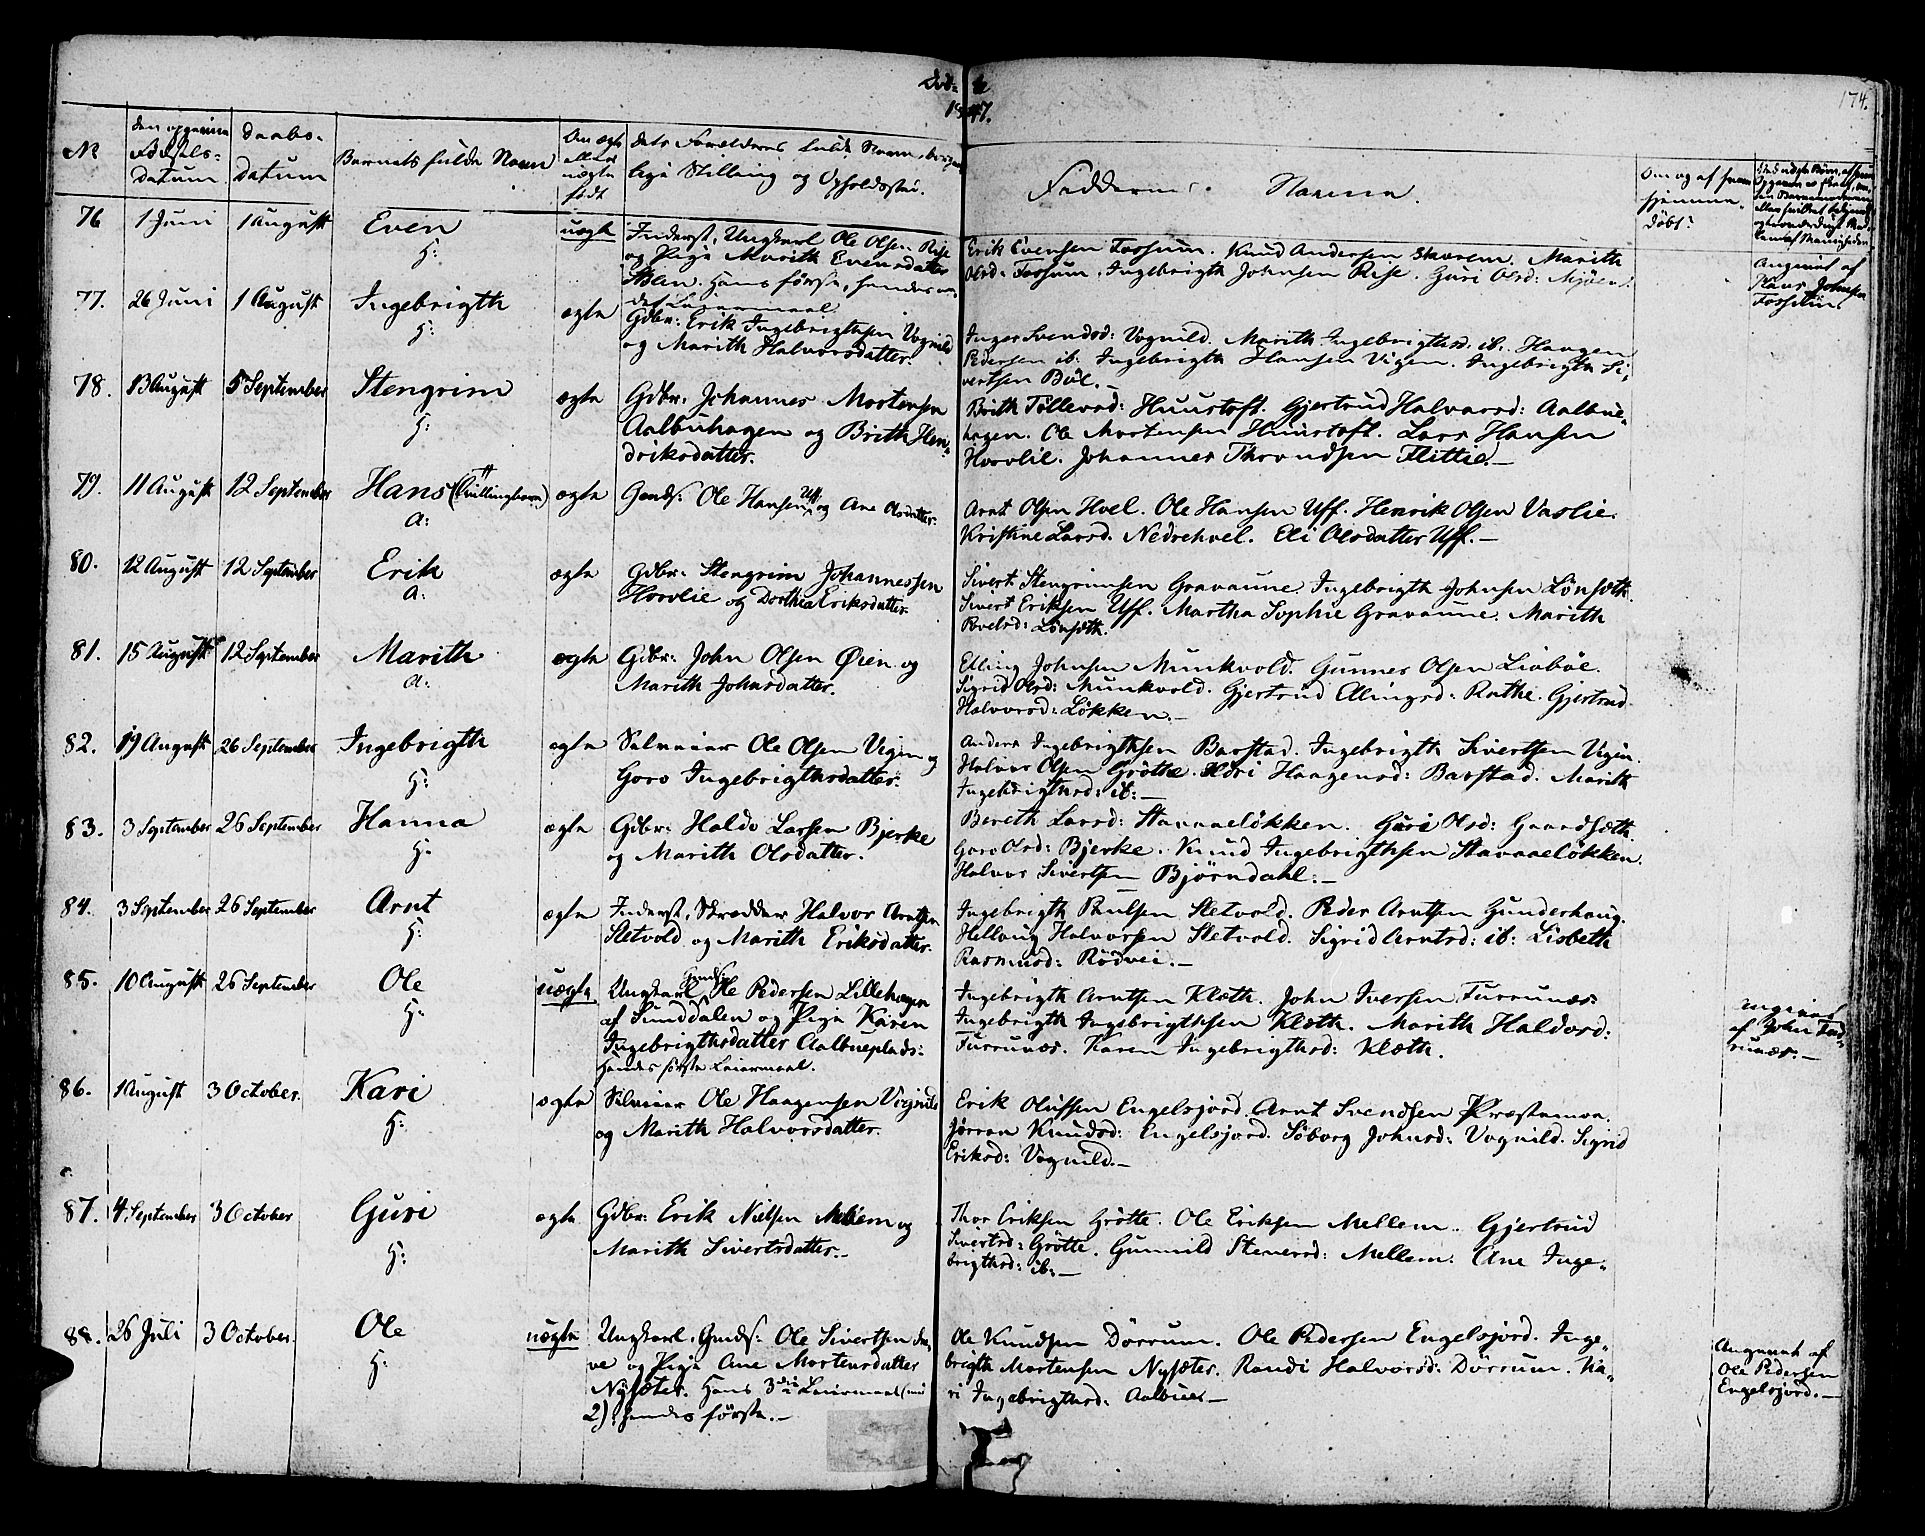 174.
1847.
No
den opgivne Fødsels-Datum
Daabs-Datum
Barnets fulde Navn
Om ægte eller uægte født
dets Forældres fulde Navn, borgerlige Stilling og Opholdssted.
Faddernes Navne.
Om og af hvem hjemmedøbt?
76 1 Juni 1 August Even uægte Inderst, Ungkarl Ole Olsen Rise
H: og Pige Marith Evensdatter
Hans første, hendes andet Leiermaal.
Erik Evensen Fossum. Knud Andersen Skarem. Marith
Olsd: Fossum. Ingebrigth Johnsen Rise. Guri Olsd: Mjøen.
Angivet af
Hans Johnsen
Fossum
77. 26 Juni 1 August Ingebrigth ægte Gdbr: Erik Ingebrigthsen Vognild
H: og Marith Halvorsdatter.
Inger Svendsd: Vognild. Marith Ingebrigthsd. ib. Haagen
Pedersen ib. Ingebrigth Hansen Vigen. Ingebrigth Si-
vertsen Böe.
78. 13 August 5 September Stengrim ægte Gdbr: Johannes Mortensen
H: Aalbuhagen og Brith Hen-
driksdatter.
Brith Tollevsd: Huustoft. Gjertrud Halvorsd: Aalbue-
hagen. Ole Mortensen Huustoft. Lars Hansen
Hovrlie. Johannes Throndsen Flittie.
79. 11 August 12 September Hans (Tvillingbarn) ægte Gmds: Ole Hansen Uff. og Ane Olsdatter.
A:
Arnt Olsen Hvel. Ole Hansen Uff. Henrik Olsen Vaslie.
Kristine Larsd. Nedrehvel. Eli Olsdatter Uff.
80. 12 August 12 September Erik ægte Gdbr: Stengrim Johannessen
A: Hovrlie og Dorthea Eriksdatter.
Sivert Stengrimsen Gravaune. Ingebrigth Johnsen Lönsæth.
Sivert Eriksen Uff. Martha Sophie Gravaune. Marith
Povelsd: Lönsæth.
81. 15 August 12 September Marith ægte Gdbr: John Olsen Øien og
A: Marith Johnsdatter.
Elling Johnsen Munkvold. Gunner Olsen Liabøe.
Sigrid Olsd: Munkvold. Gjertrud Ellingsd: Rathe. Gjertrud
Halvorsd: Løkken.
82. 19 August 26 September Ingebrigth ægte Selveier Ole Olsen Vigen og
H: Goro Ingebrigthsdatter.
Anders Ingebrigthsen Barstad. Ingebrigth Sivertsen Vigen.
Halvor Olsen Grøthe. Eldri Haagensd: Barstad. Marith
Ingebrigthsd: ib:
83. 3 September 26 September Hanna ægte Gdbr: Haldo Larsen Bjerke
H. og Marith Olsdatter.
Bereth Larsd: Stavaaeløkken. Guri Olsd: Gaardsæth.
Goro Olsd: Bjerke. Knud Ingebrigthsen Stavaaeløkken.
Halvor Sivertsen Bjørndahl:
84. 3 September 26 September Arnt ægte Inderst, Skrædder Halvor Arntsen
H: Sletvold og Marith Eriksdatter.
Ingebrigth Paulsen Sletvold. Peder Arntsen Gunderhaug.
Hellvig Halvorsen Sletvold. Sigrid Arntsd: ib: Lisbeth
Rasmusd: Rødvei.
85. 10 August 26 September Ole uægte Ungkarl Gmds: Ole Pedersen Lillehagen
H: af Sunddalen og Pige Karen
Ingebrigthsdatter Aalbueplads:
Hendes første Leiermaal.
Ingebrigth Arntsen Klæth. John Iversen Furrunæs.
Ingebrigth Ingebrigthsen Klæth. Marith Haldosd:
Furrunæs. Karen Ingebrigthsd: Klæth.
angivet
af John Fur-
runæs.
86. 1 August 3 October. Kari ægte Selveier Ole Haagensen Vognild
H: og Marith Halvorsdatter.
Erik Olufsen Engelsjord. Arnt Svendsen Præstemoe.
Jørran Knudsd: Engelsjord. Søborg Johnsd: Vognild. Sigrid
Eriksd: Vognild.
87. 4 September 3 October Guri ægte Gdbr: Erik Nielsen Mellem og
H: Marith Sivertsdatter.
Thor Eriksen Grøtte. Ole Eriksen Mellem. Gjertrud
Sivertsd: Grøtte. Gunnild Stenersd: Mellem. Ane Inge-
brigthsd: ib:
88. 26 Juli 3 October. Ole uægte Ungkarl, Gmds: Ole Sivertsen
H: og Pige Ane Mortensdatter
Nysæter. Hans 3die Leiermaal
2) hendes første.
Ole Knudsen Dørrum. Ole Pedersen Engelsjord. Inge-
brigth Mortensen Nysæter. Randi Halvorsd: Dørrum. Ka-
ri Ingebrigthsd: Aalbue
Angivet af
Ole Pedersen
Engelsjord.